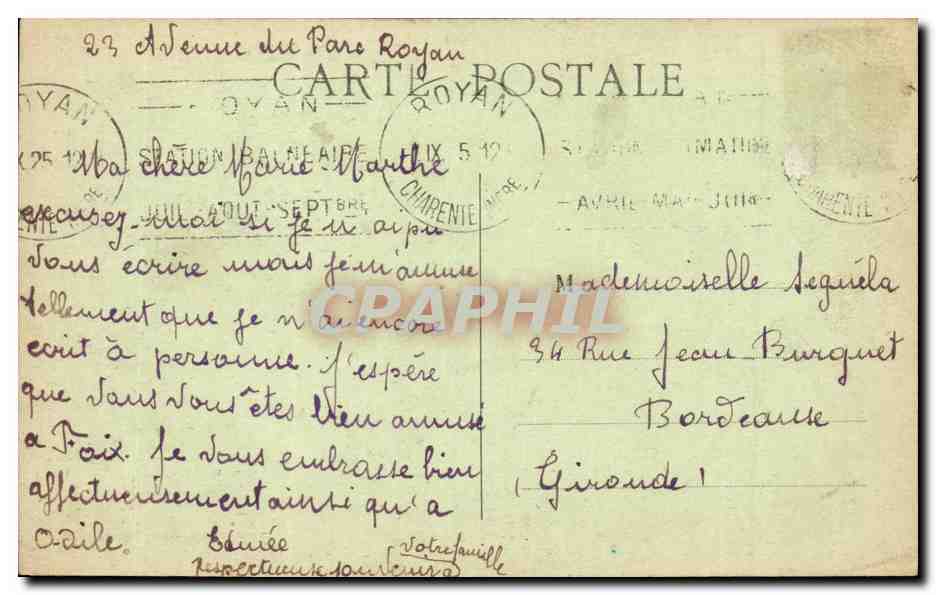 23 Avenue du Parc Royan
CARTE POSTALE
ROYAN
STATION BALNEAIRE
JUIL-AOUT-SEPTBRE
ROYAN
IX 5 12
CHARENTE INFRE
AVRIL-MAI-JUIN
Ma chère Marie-Marthe
excusez-moi si je n'ai pu
vous écrire mais je m'amuse
tellement que je n'ai encore
ecrit à personne. J'espère
que vous vous êtes bien amusé
a Foix. Je vous embrasse bien
affectueusement ainsi qu'a
Odile.
Edmée
votre famille
respectueux souvenirs
Mademoiselle Seguéla
34 Rue Jean Burguet
Bordeause
(Gironde)
CPAPHIL